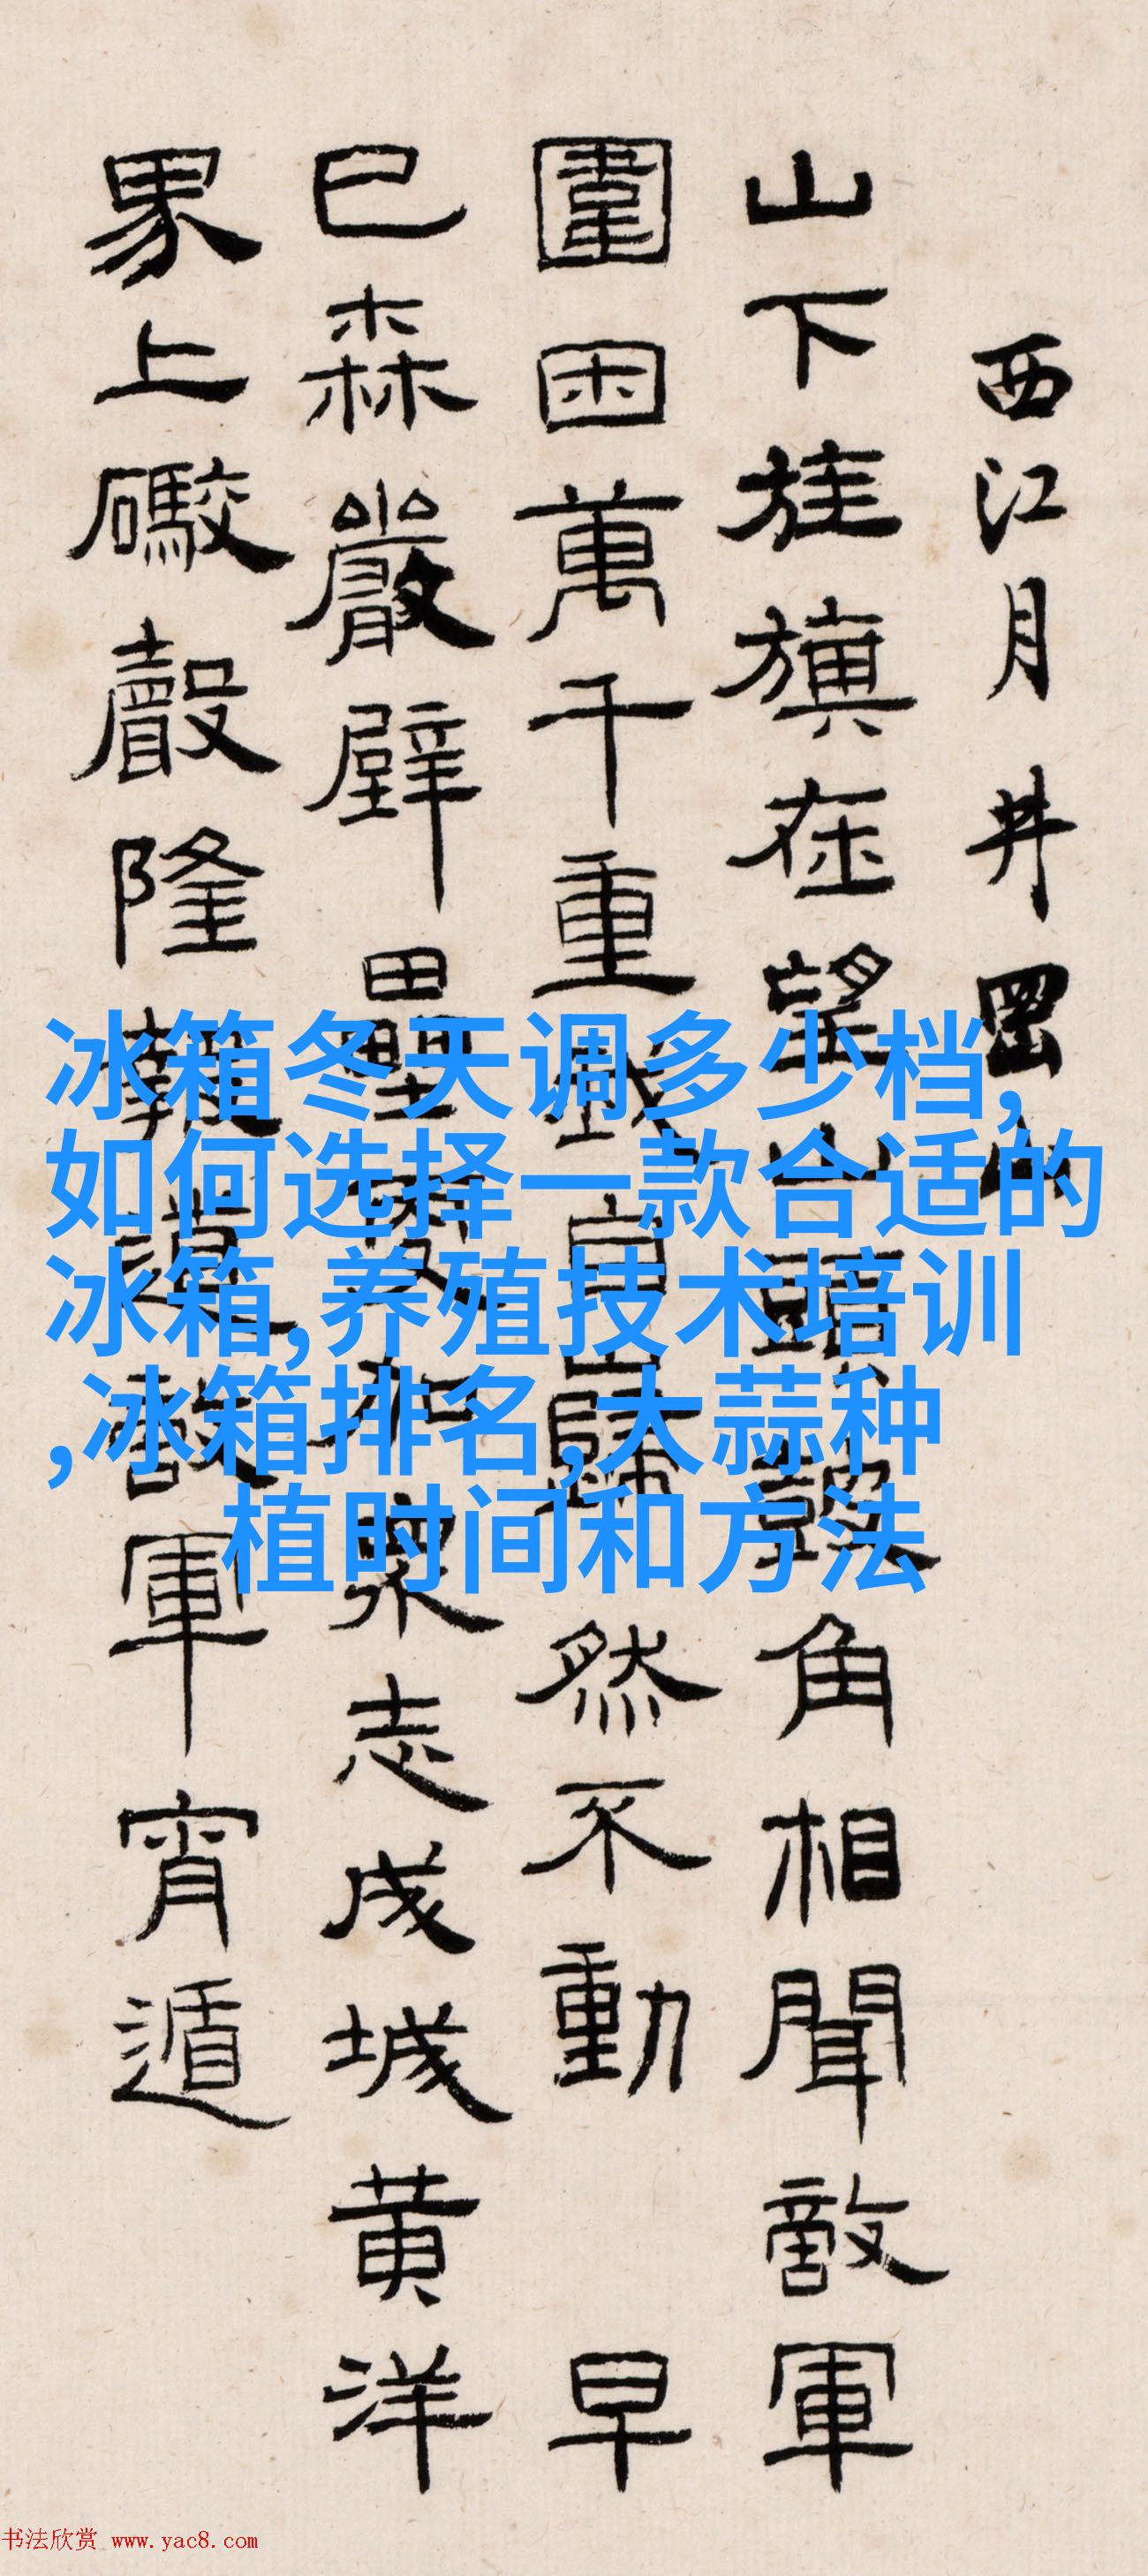 西江月井岡山
山下旌旗在望山頭鼓角相聞敵軍
圍困萬千重我自巋然不動 早
已森嚴壁壘更加衆志成城黄洋
界上礮聲隆報道敵軍宵遁
冰箱冬天调多少档,
如何选择一款合适的
冰箱,养殖技术培训
,冰箱排名,大蒜种
植时间和方法
书法欣赏 www.yac8.com